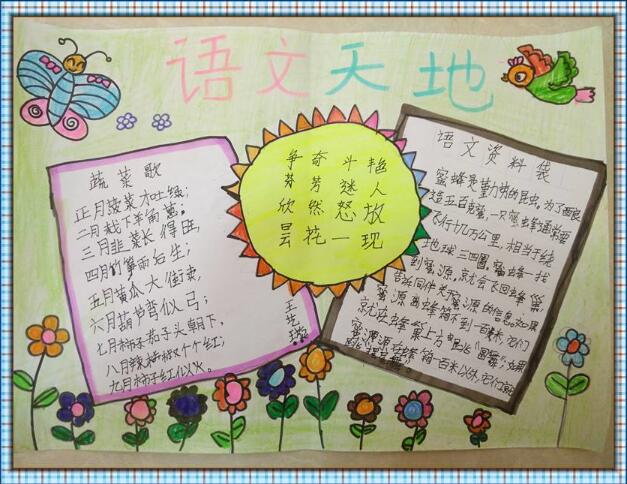 语文天地
蔬菜歌
正月菠菜才吐绿；
二月栽下羊角葱；
三月韭菜长得旺，
四月竹笋雨后生；
五月黄瓜大街卖，
六月葫芦弯似弓；
七月柿茄子头朝下，
八月辣椒个个红；
九月柿子红似火。
王艺璇
争奇斗艳
芬芳迷人
欣然怒放
昙花一现
语文资料袋
蜜蜂是勤快的昆虫。为了酿
造五百克蜜，一只蜜蜂通常要
飞行
万公里，相当于绕
地球三四圈。蜜蜂一找
到蜜源，就会飞回蜂巢，
告诉同伴关于蜜源的信息。如果
蜜源离蜂箱不到一百米，它们
就在蜂巢上方
跳“圆舞”；如果
蜜源在蜂箱一百米以外，它们